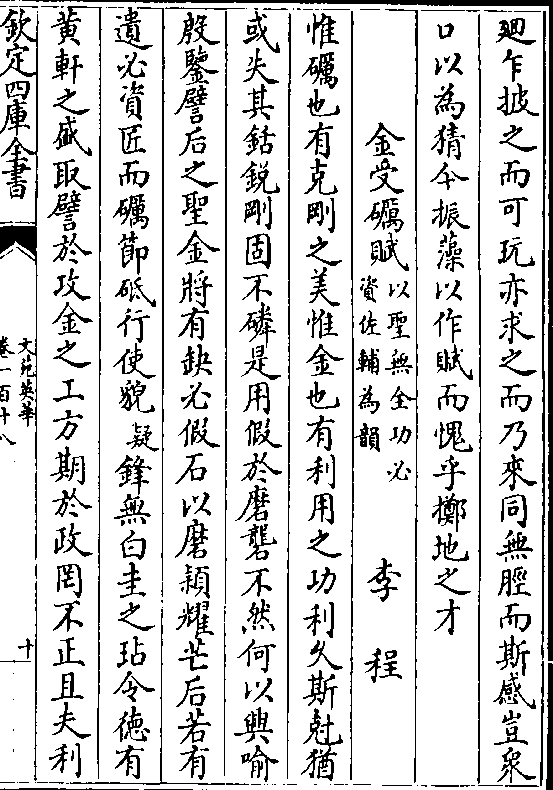 廻乍披之而可玩亦求之而乃來同無脛而斯感豈衆
口以為猜今振藻以作賦而愧乎擲地之才
金受礪賦以聖無全功必資佐輔為韻
李程
惟礪也有克剛之美惟金也有利用之功利久斯尅猶
或失其銛銳剛固不磷是用假於磨礱不然何以興喻
殷鑒譬后之聖金將有缺必假石以磨潁耀芒后若有
遺必資匠而礪節砥行使貌疑鋒無白圭之玷令徳有
黄軒之盛取譬於攻金之工方期於政罔不正且夫利
欽定四庫全書
文苑英華
卷一百十八
十